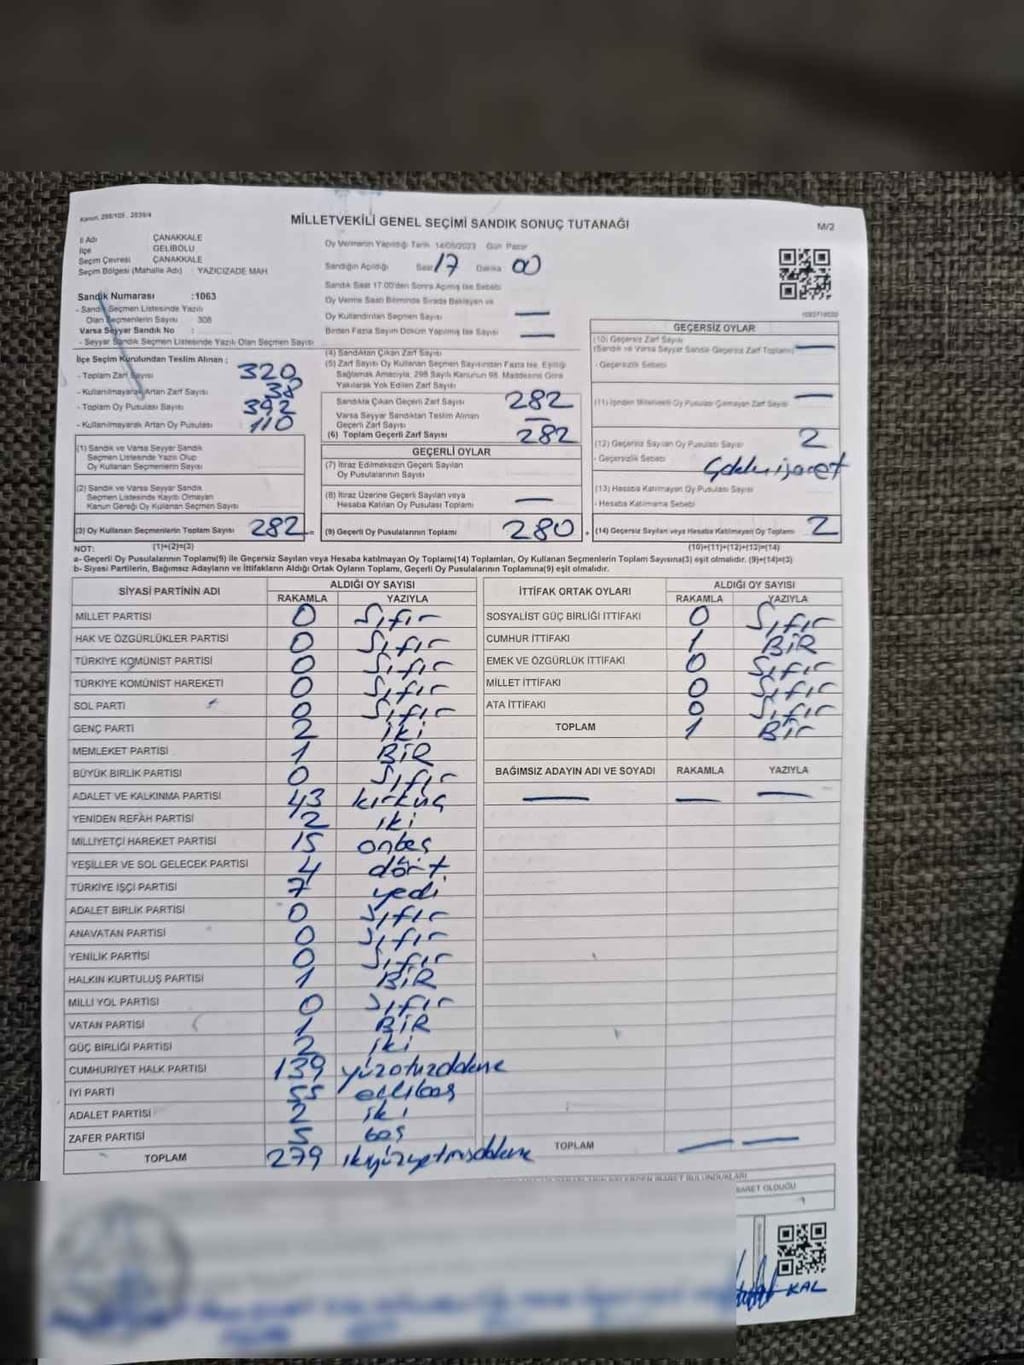 Kanun, 298/105, 2839/4
MİLLETVEKİLİ GENEL SEÇİMİ SANDIK SONUÇ TUTANAĞI
M/2
İl Adı ÇANAKKALE
İlçe GELİBOLU
Seçim Çevresi ÇANAKKALE
Seçim Bölgesi (Mahalle Adı) YAZICIZADE MAH
Oy Vermenin Yapıldığı Tarih 14/05/2023 Gün Pazar
Sandığın Açıldığı Saat 17 Dakika 00
Sandık Saat 17.00'den Sonra Açılmış İse Sebebi
Oy Verme Saati Bitiminde Sırada Bekleyen ve
Oy Kullandırılan Seçmen Sayısı —
Birden Fazla Sayım Döküm Yapılmış İse Sayısı —
Sandık Numarası :1063
- Sandık Seçmen Listesinde Yazılı
Olan Seçmenlerin Sayısı : 308
Varsa Seyyar Sandık No :
- Seyyar Sandık Seçmen Listesinde Yazılı Olan Seçmen Sayısı
İlçe Seçim Kurulundan Teslim Alınan ;
- Toplam Zarf Sayısı 320
- Kullanılmayarak Artan Zarf Sayısı 38
- Toplam Oy Pusulası Sayısı 392
- Kullanılmayarak Artan Oy Pusulası 110
(1) Sandık ve Varsa Seyyar Sandık
Seçmen Listesinde Yazılı Olup
Oy Kullanan Seçmenlerin Sayısı
(2) Sandık ve Varsa Seyyar Sandık
Seçmen Listesinde Kayıtlı Olmayan
Kanun Gereği Oy Kullanan Seçmen Sayısı
(3) Oy Kullanan Seçmenlerin Toplam Sayısı 282 =
(4) Sandıktan Çıkan Zarf Sayısı
(5) Zarf Sayısı Oy Kullanan Seçmen Sayısından Fazla İse, Eşitliği
Sağlamak Amacıyla, 298 Sayılı Kanunun 98. Maddesine Göre
Yakılarak Yok Edilen Zarf Sayısı
Sandıkta Çıkan Geçerli Zarf Sayısı 282
Varsa Seyyar Sandıktan Teslim Alınan
Geçerli Zarf Sayısı —
(6) Toplam Geçerli Zarf Sayısı 282
GEÇERLİ OYLAR
(7) İtiraz Edilmeksizin Geçerli Sayılan
Oy Pusulalarının Sayısı
(8) İtiraz Üzerine Geçerli Sayılan veya
Hesaba Katılan Oy Pusulaları Toplamı —
(9) Geçerli Oy Pusulalarının Toplamı 280 +
GEÇERSİZ OYLAR
(10) Geçersiz Zarf Sayısı
(Sandık ve Varsa Seyyar Sandık Geçersiz Zarf Toplamı) —
- Geçersizlik Sebebi
(11) İçinden Milletvekili Oy Pusulası Çıkmayan Zarf Sayısı —
(12) Geçersiz Sayılan Oy Pusulası Sayısı 2
- Geçersizlik Sebebi
(13) Hesaba Katılmayan Oy Pusulası Sayısı
- Hesaba Katılmama Sebebi
(14) Geçersiz Sayılan veya Hesaba Katılmayan Oy Toplamı 2
NOT: (1)+(2)=(3) (10)+(11)+(12)+(13)=(14)
a- Geçerli Oy Pusulalarının Toplamı(9) ile Geçersiz Sayılan veya Hesaba katılmayan Oy Toplamı(14) Toplamları, Oy Kullanan Seçmenlerin Toplam Sayısına(3) eşit olmalıdır. (9)+(14)=(3)
b- Siyasi Partilerin, Bağımsız Adayların ve İttifakların Aldığı Ortak Oyların Toplamı, Geçerli Oy Pusulalarının Toplamına(9) eşit olmalıdır.
SİYASİ PARTİNİN ADI ALDIĞI OY SAYISI
RAKAMLA YAZIYLA
MİLLET PARTİSİ 0 Sıfır
HAK VE ÖZGÜRLÜKLER PARTİSİ 0 Sıfır
TÜRKİYE KOMÜNİST PARTİSİ 0 Sıfır
TÜRKİYE KOMÜNİST HAREKETİ 0 Sıfır
SOL PARTİ 0 Sıfır
GENÇ PARTİ 2 iki
MEMLEKET PARTİSİ 1 BİR
BÜYÜK BİRLİK PARTİSİ 0 Sıfır
ADALET VE KALKINMA PARTİSİ 43 kırküç
YENİDEN REFAH PARTİSİ 2 iki
MİLLİYETÇİ HAREKET PARTİSİ 15 onbeş
YEŞİLLER VE SOL GELECEK PARTİSİ 4 dört
TÜRKİYE İŞÇİ PARTİSİ 7 yedi
ADALET BİRLİK PARTİSİ 0 Sıfır
ANAVATAN PARTİSİ 0 Sıfır
YENİLİK PARTİSİ 0 Sıfır
HALKIN KURTULUŞ PARTİSİ 1 BİR
MİLLİ YOL PARTİSİ 0 Sıfır
VATAN PARTİSİ 1 BİR
GÜÇ BİRLİĞİ PARTİSİ 2 iki
CUMHURİYET HALK PARTİSİ 139 yüzotuzdokuz
İYİ PARTİ 55 ellibeş
ADALET PARTİSİ 2 iki
ZAFER PARTİSİ 5 beş
TOPLAM 279 ikiyüzyetmişdokuz
İTTİFAK ORTAK OYLARI ALDIĞI OY SAYISI
RAKAMLA YAZIYLA
SOSYALİST GÜÇ BİRLİĞİ İTTİFAKI 0 Sıfır
CUMHUR İTTİFAKI 1 BİR
EMEK VE ÖZGÜRLÜK İTTİFAKI 0 Sıfır
MİLLET İTTİFAKI 0 Sıfır
ATA İTTİFAKI 0 Sıfır
TOPLAM 1 Bir
BAĞIMSIZ ADAYIN ADI VE SOYADI RAKAMLA YAZIYLA
— — —
TOPLAM — —
KAL